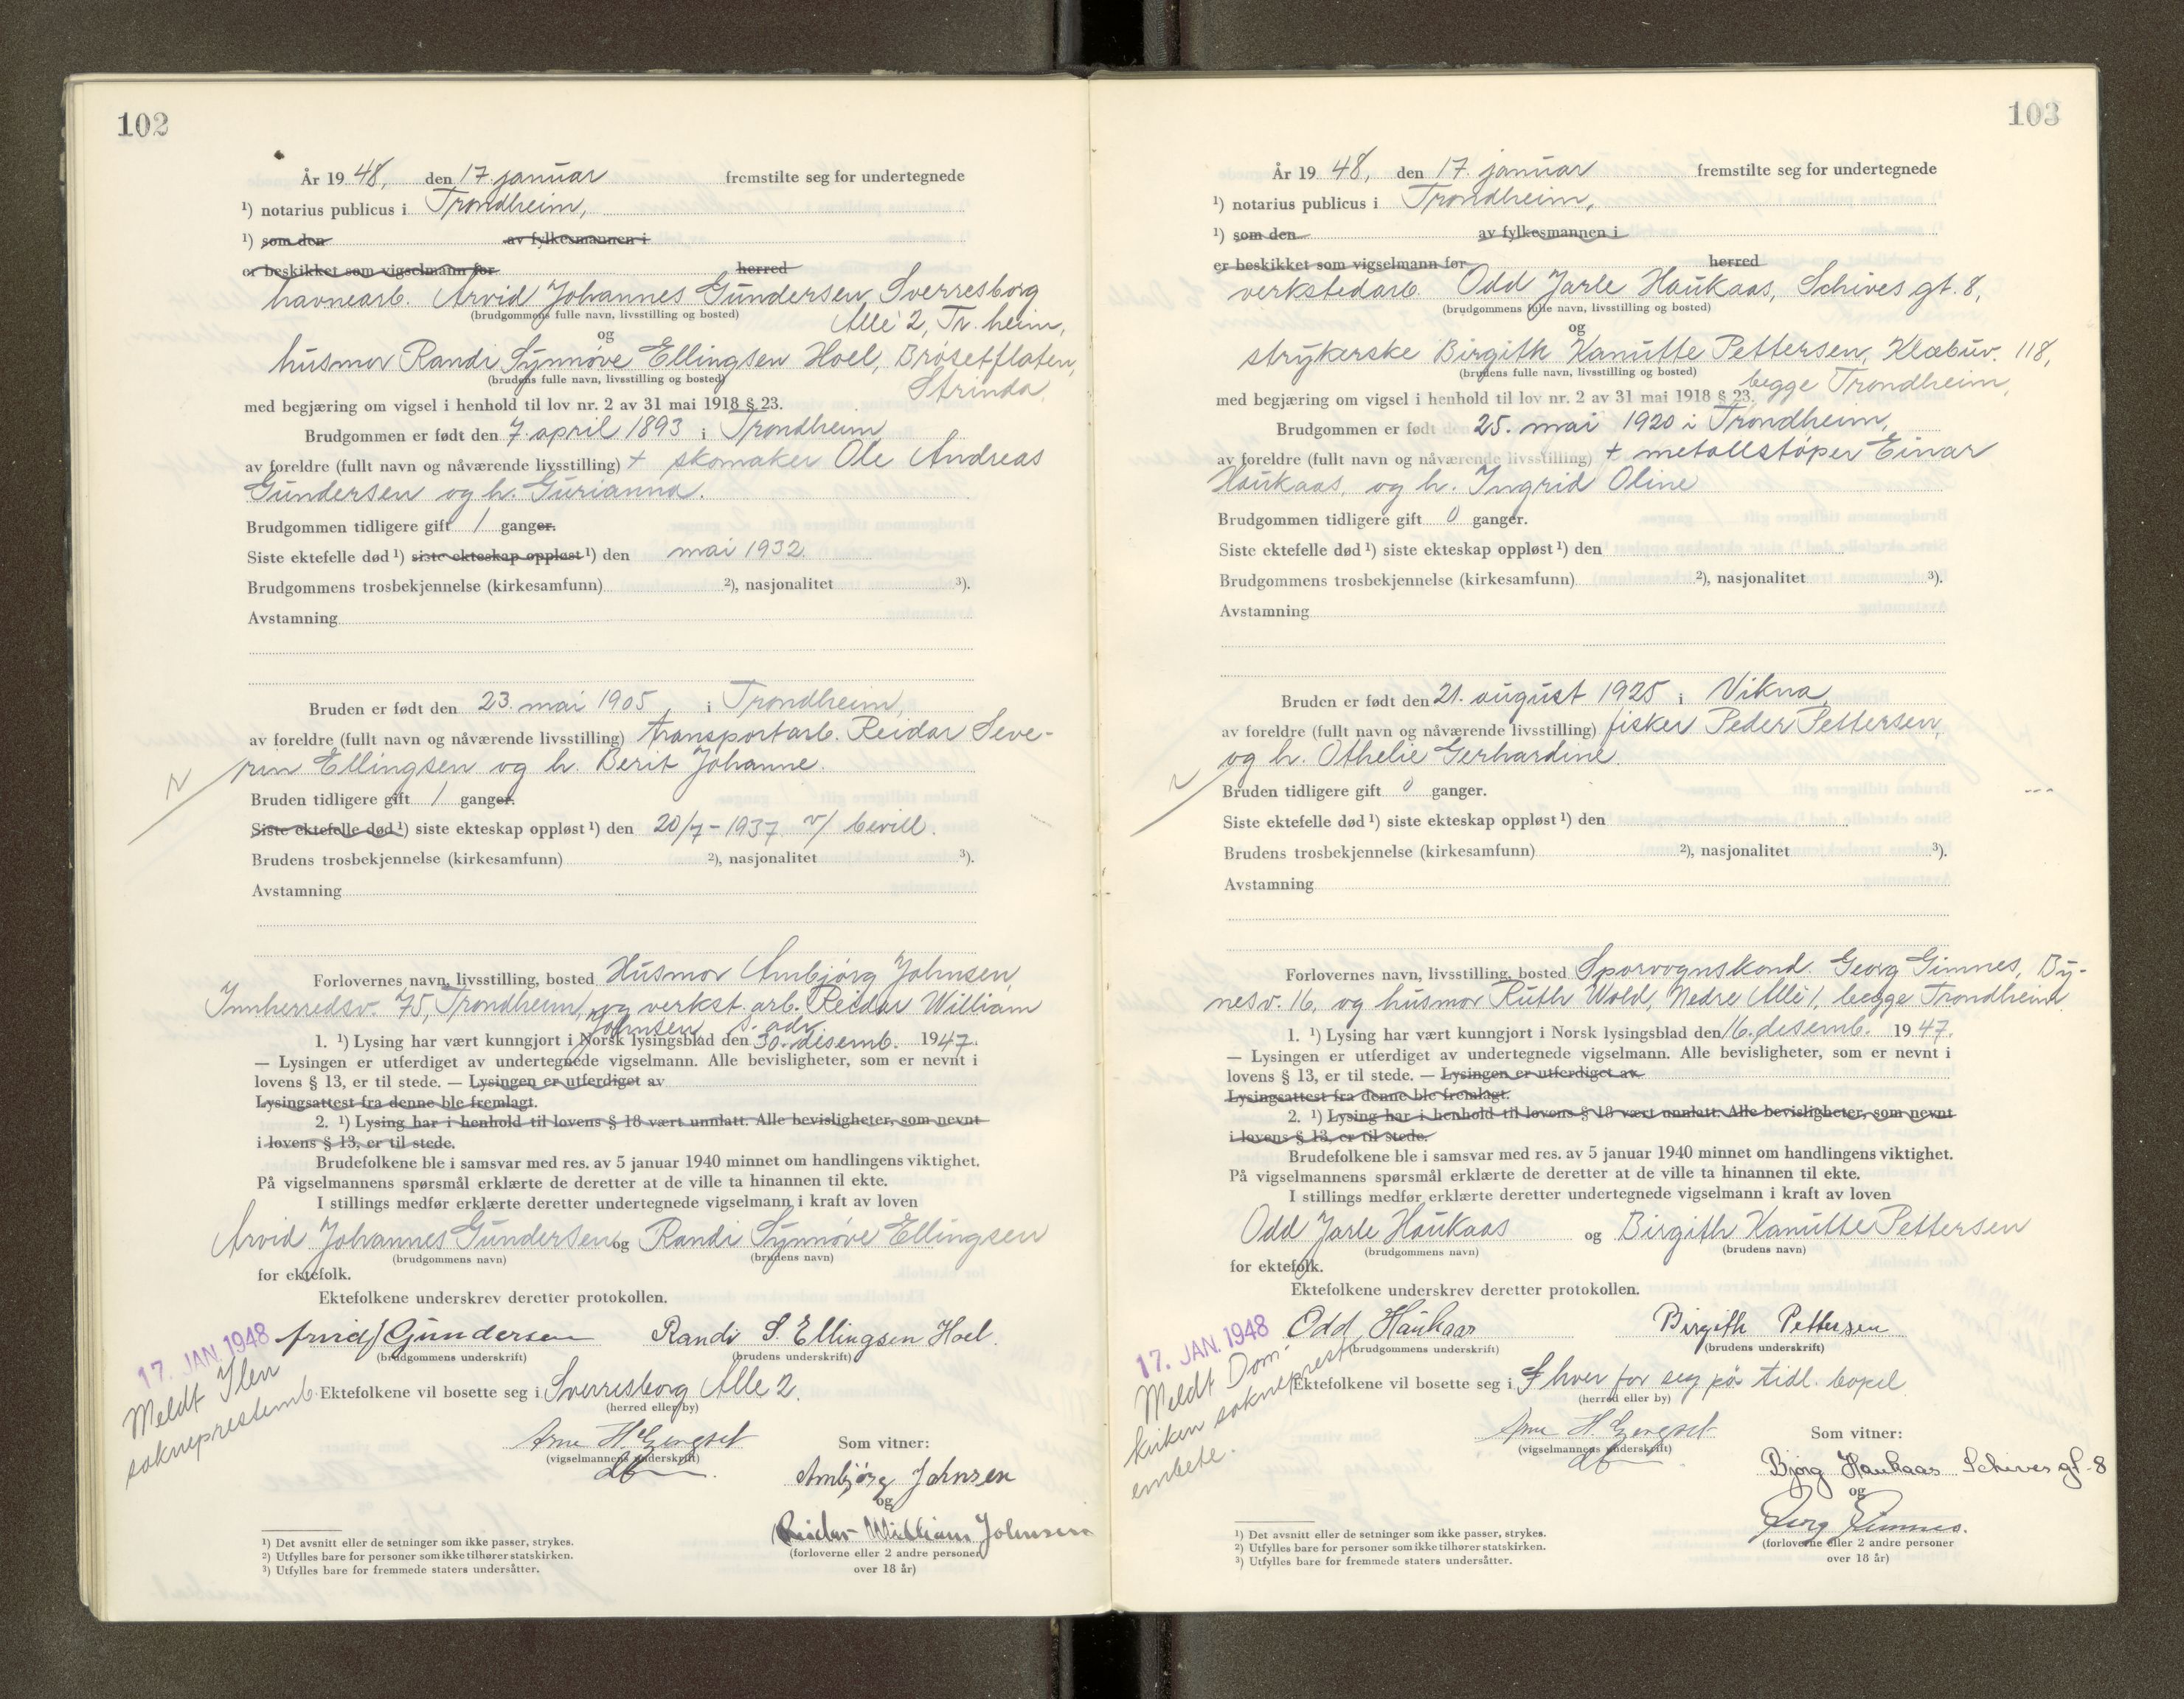 102
År 19 48, den 17. januar fremstilte seg for undertegnede
1) notarius publicus i Trondheim,
1) som den av fylkesmannen i
er beskikket som vigselmann for herred
havnearb. Arvid Johannes Gundersen, Sverresborg
(brudgommens fulle navn, livsstilling og bosted) Allé 2, Tr.heim,
og
husmor Randi Synnøve Ellingsen Hoel, Brøsetflaten,
(brudens fulle navn, livsstilling og bosted) Strinda,
med begjæring om vigsel i henhold til lov nr. 2 av 31 mai 1918 § 23.
Brudgommen er født den 7. april 1893 i Trondheim
av foreldre (fullt navn og nåværende livsstilling) + skomaker Ole Andreas
Gundersen og h. Gurianna.
Brudgommen tidligere gift 1 ganger.
Siste ektefelle død 1) siste ekteskap oppløst 1) den mai 1932
Brudgommens trosbekjennelse (kirkesamfunn) 2), nasjonalitet 3).
Avstamning
Bruden er født den 23. mai 1905 i Trondheim,
av foreldre (fullt navn og nåværende livsstilling) transportarb. Reidar Seve-
rin Ellingsen og h. Berit Johanne.
Bruden tidligere gift 1 ganger.
Siste ektefelle død 1) siste ekteskap oppløst 1) den 20/7-1937 v/ bevill.
Brudens trosbekjennelse (kirkesamfunn) 2), nasjonalitet 3).
Avstamning
Forlovernes navn, livsstilling, bosted Husmor Ambjørg Johnsen,
Innherredsv. 75, Trondheim, og verkst.arb. Reidar William
Johnsen s. adr.
1. 1) Lysing har vært kunngjort i Norsk lysingsblad den 30. desemb. 1947.
— Lysingen er utferdiget av undertegnede vigselmann. Alle bevisligheter, som er nevnt i
lovens § 13, er til stede. — Lysingen er utferdiget av
Lysingsattest fra denne ble fremlagt.
2. 1) Lysing har i henhold til lovens § 18 vært unnlatt. Alle bevisligheter, som nevnt
i lovens § 13, er til stede.
Brudefolkene ble i samsvar med res. av 5 januar 1940 minnet om handlingens viktighet.
På vigselmannens spørsmål erklærte de deretter at de ville ta hinannen til ekte.
I stillings medfør erklærte deretter undertegnede vigselmann i kraft av loven
Arvid Johannes Gundersen og Randi Synnøve Ellingsen
(brudgommens navn) (brudens navn)
for ektefolk.
Ektefolkene underskrev deretter protokollen.
17. JAN. 1948
Arvid J Gundersen Randi S. Ellingsen Hoel.
(brudgommens underskrift) (brudens underskrift)
Meldt Ilen
sokneprestemb.
Ektefolkene vil bosette seg i Sverresborg Alle 2.
(herred eller by)
Som vitner:
(vigselmannens underskrift)
Ambjørg Johnsen
og
Reidar William Johnsen
(forloverne eller 2 andre personer
over 18 år)
1) Det avsnitt eller de setninger som ikke passer, strykes.
2) Utfylles bare for personer som ikke tilhører statskirken.
3) Utfylles bare for fremmede staters undersåtter.
103
År 19 48, den 17. januar fremstilte seg for undertegnede
1) notarius publicus i Trondheim,
1) som den av fylkesmannen i
er beskikket som vigselmann for herred
verkstedarb. Odd Jarle Haukaas, Schives gt. 8,
(brudgommens fulle navn, livsstilling og bosted)
og
strykerske Birgith Kanutte Pettersen, Klæbuv. 118,
(brudens fulle navn, livsstilling og bosted) begge Trondheim,
med begjæring om vigsel i henhold til lov nr. 2 av 31 mai 1918 § 23.
Brudgommen er født den 25. mai 1920 i Trondheim,
av foreldre (fullt navn og nåværende livsstilling) + metallstøper Einar
Haukaas, og h. Ingrid Oline
Brudgommen tidligere gift 0 ganger.
Siste ektefelle død 1) siste ekteskap oppløst 1) den
Brudgommens trosbekjennelse (kirkesamfunn) 2), nasjonalitet 3).
Avstamning
Bruden er født den 21. august 1925 i Vikna
av foreldre (fullt navn og nåværende livsstilling) fisker Peder Pettersen,
og h. Othelie Gerhardine.
Bruden tidligere gift 0 ganger.
Siste ektefelle død 1) siste ekteskap oppløst 1) den
Brudens trosbekjennelse (kirkesamfunn) 2), nasjonalitet 3).
Avstamning
Forlovernes navn, livsstilling, bosted Sporvognskond. Georg Gimnes, By-
nesv. 16, og husmor Ruth Wold, Nedre Allé 1, begge Trondheim
1. 1) Lysing har vært kunngjort i Norsk lysingsblad den 16. desemb. 1947.
— Lysingen er utferdiget av undertegnede vigselmann. Alle bevisligheter, som er nevnt i
lovens § 13, er til stede. — Lysingen er utferdiget av
Lysingsattest fra denne ble fremlagt.
2. 1) Lysing har i henhold til lovens § 18 vært unnlatt. Alle bevisligheter, som nevnt
i lovens § 13, er til stede.
Brudefolkene ble i samsvar med res. av 5 januar 1940 minnet om handlingens viktighet.
På vigselmannens spørsmål erklærte de deretter at de ville ta hinannen til ekte.
I stillings medfør erklærte deretter undertegnede vigselmann i kraft av loven
Odd Jarle Haukaas og Birgith Kanutte Pettersen
(brudgommens navn) (brudens navn)
for ektefolk.
Ektefolkene underskrev deretter protokollen.
17. JAN. 1948
Odd Haukaas Birgith Pettersen
(brudgommens underskrift) (brudens underskrift)
Meldt Dom-
kirken sokneprest
embete.
Ektefolkene vil bosette seg i I hver for seg på tidl. bopel
(herred eller by)
Som vitner:
(vigselmannens underskrift)
Bjørg Haukaas Schives gt-8
og
Georg Gimnes.
(forloverne eller 2 andre personer
over 18 år)
1) Det avsnitt eller de setninger som ikke passer, strykes.
2) Utfylles bare for personer som ikke tilhører statskirken.
3) Utfylles bare for fremmede staters undersåtter.